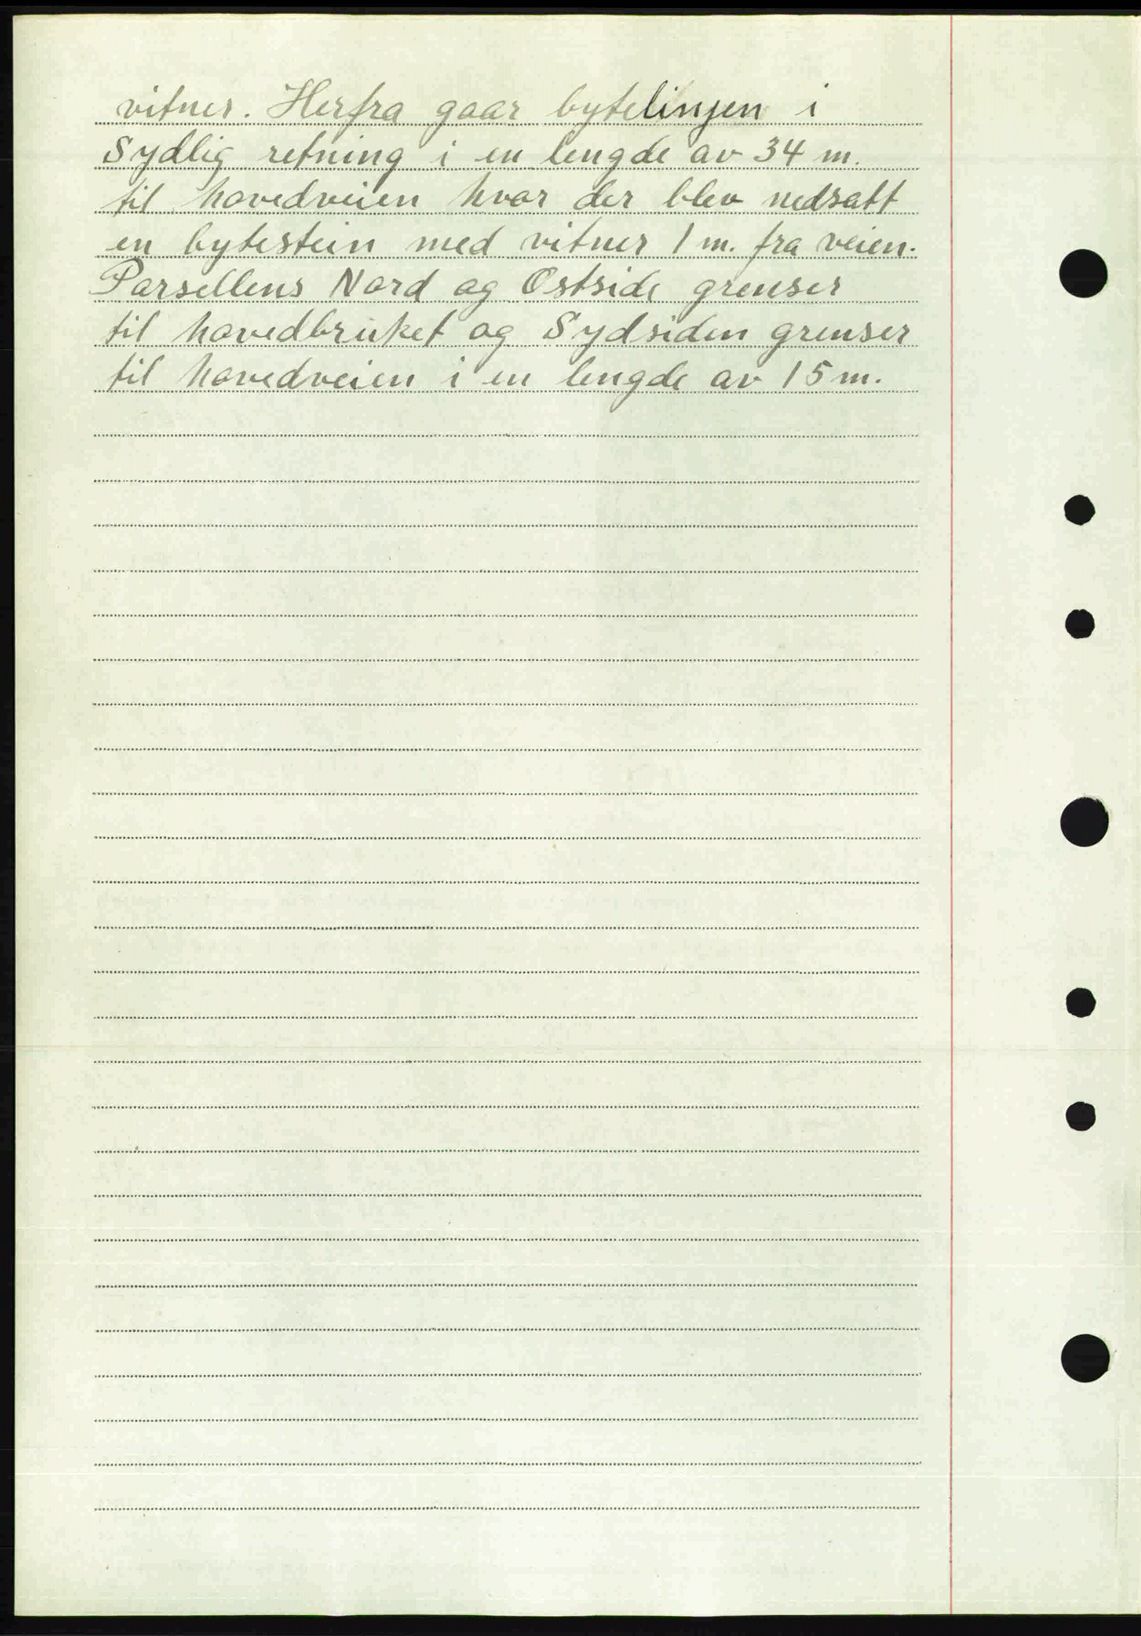 vitner. Herfra gaar bytelinjen i
Sydlig retning i en lengde av 34 m.
til hovedveien hvor der blev nedsatt
en bytestein med vitner 1 m. fra veien.
Parsellens Nord og Østside grenser
til hovedbruket og Sydsiden grenser
til hovedveien i en lengde av 15 m.